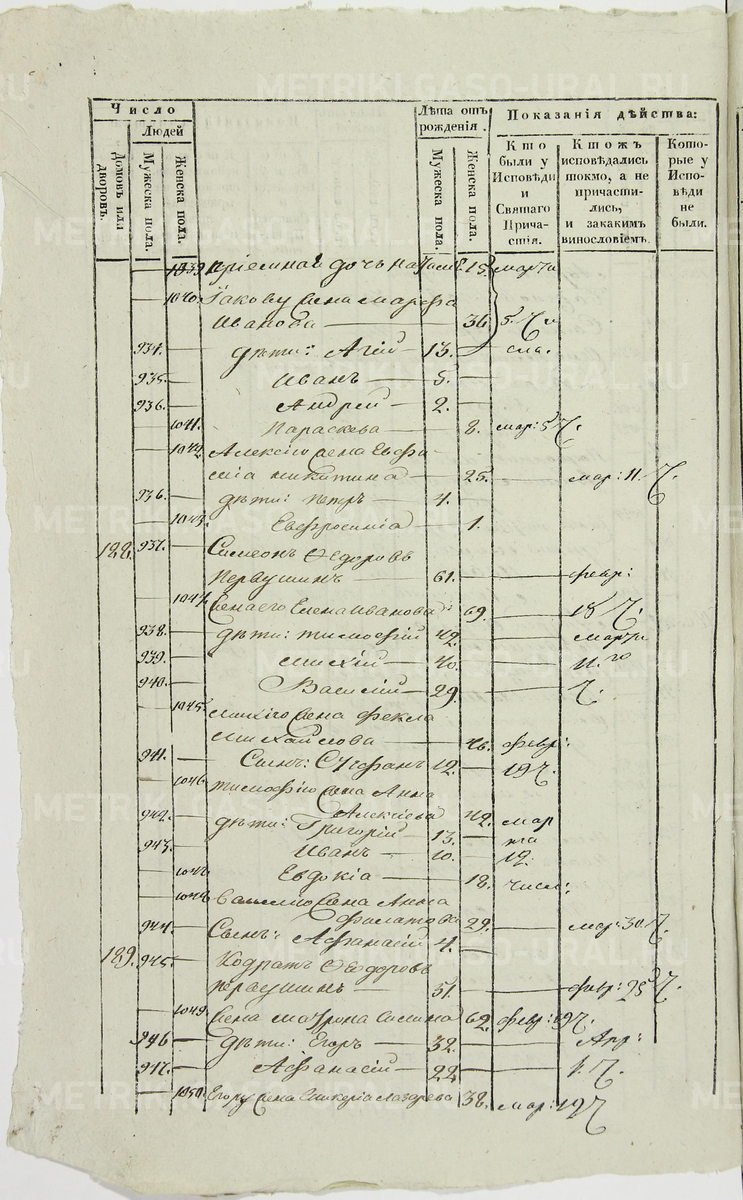 Число
Людей
Домовъ или дворовъ.
Мужеска пола.
Женска пола.
Лѣта отъ рожденія.
Мужеска пола.
Женска пола.
Показанія дѣйства:
Кто были у Исповѣди и Святаго Причастія.
Ктожъ исповѣдались токмо, а не причастились, и закакимъ винословіемъ.
Которые у Исповѣди не были.
1039 пріемная дочь 15. марта
1040. Іакову жена Марѳа
Иванова 36. 5. Ч.
934. дѣти: 13.
935. Иванъ 5.
936. Андрей 2.
1041. Параскева 8. мар: 5 Ч.
1042 Алексію жена Евфи
мія Никитина 25. мар: 11. Ч.
936. дѣти: Петръ 4.
1043. Евфросинія 1.
188. 937. Симеонъ Ѳедоровъ
Первушинъ 61. февр:
1044 жена его Елена Иванова 69. 18 Ч.
938. дѣти: Тимоѳій 42. марта
939. 40. 11.го
940. Василій 29. Ч.
1045. жена Фекла
Михайлова 46. февр:
941. Сынъ: Стефанъ 12. 19 Ч.
1046 Тимофію жена Анна
Алексіева 42. мар
942. дѣти: Григорій 13. та
943. Иванъ 10. 12.
Евдокіа 18. числ:
Василію жена Анна
Филатова 29. мар: 30 Ч.
944. Сынъ: Афанасій 4.
189. 945. Кодратъ Ѳеодоровъ
Первушинъ 51. февр: 25 Ч.
1049. Жена Матрона 62. февр: 19 Ч.
946 дѣти: Егоръ 32. Апр:
947. Афанасій 22 1. Ч.
1050. Егору жена Гликеріа Лазарева 38. мар: 19 Ч
METRIKI.GASO-URAL.RU